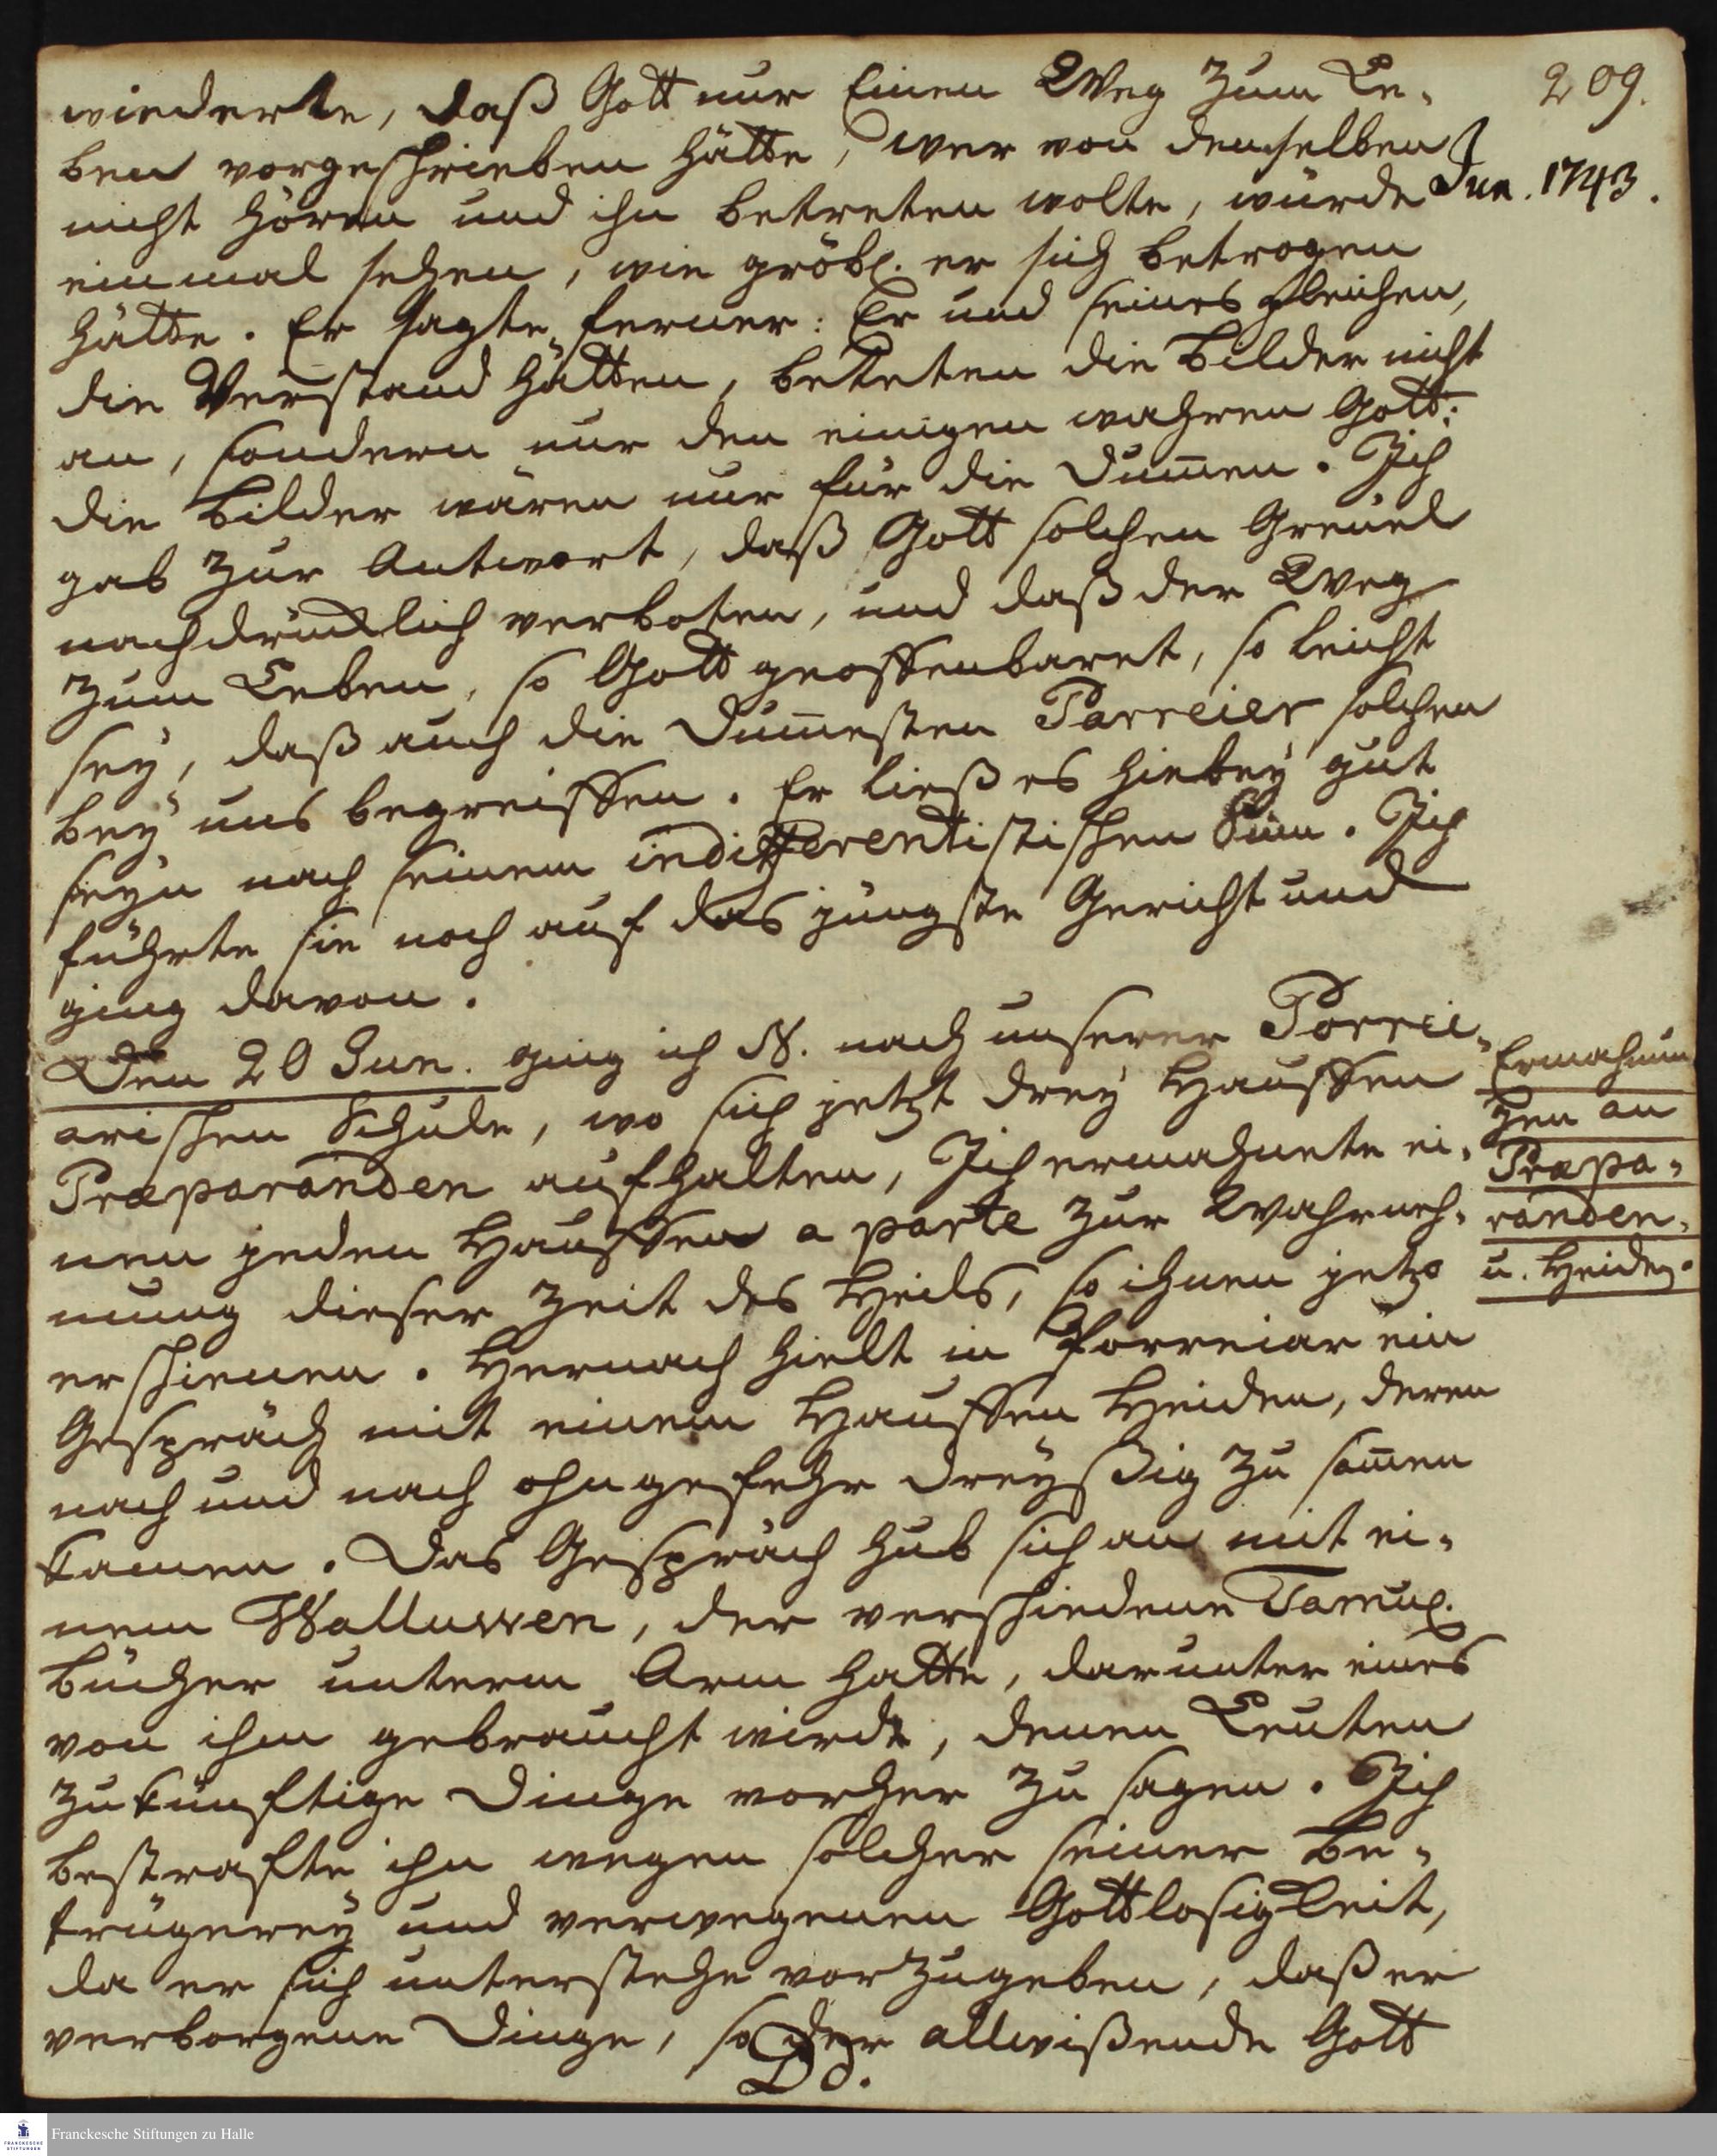 209.
Jun. 1743.
wiederte, daß Gott nur Einen Weg zum Le-
ben vorgeschrieben hätte, wer von demselben
nicht hören und ihn betreten wolte, würde
einmal sehen, wie gröbl. er sich betrogen
hätte. Er sagte ferner: Er und seines gleichen,
die Verstand hätten, beteten die Bilder nicht
an, sondern nur den einigen wahren Gott:
die Bilder wären nur für die Dum̅en. Ich
gab zur Antwort, daß Gott solchen Greuel
nachdrücklich verboten, und daß der Weg
zum Leben, so Gott geoffenbaret, so leicht
sey, daß auch die Dum̅esten Parreier solchen
bey uns begreiffen. Er ließ es hiebey gut
seyn nach seinem indifferentistischen Sinn. Ich
führte sie noch auf das jüngste Gericht und
ging davon.
Den 20 Jun. ging ich N. nach unserer Porrei-
arischen Schule, wo sich jetzt drey Hauffen
Præparanden aufhalten, Ich ermahnete ei-
nen jeden Hauffen a parte zur Wahrneh-
mung dieser Zeit des Heils, so ihnen jetzo
erschienen. Hernach hielt in Porreiar ein
Gespräch mit einem Hauffen Heiden, deren
nach und nach ohngefehr dreyßig zu sam̅en
kamen. Das Gespräch hub sich an mit ei-
nem Walluwen, der verschiedene Tamul.
Bücher unterm Arm hatte, darunter eines
von ihm gebraucht wird, denen Leuten
zukünftige Dinge vorher zu sagen. Ich
bestrafte ihn wegen solcher seiner Be-
trügerey und verwegenen Gottlosigkeit,
da er sich unterstehe vorzugeben, daß er
verborgene Dinge, so der allwißende Gott
Dd.
Ermahnun
gen an
Præpa-
randen.
u. Heiden.
Franckesche Stiftungen zu Halle